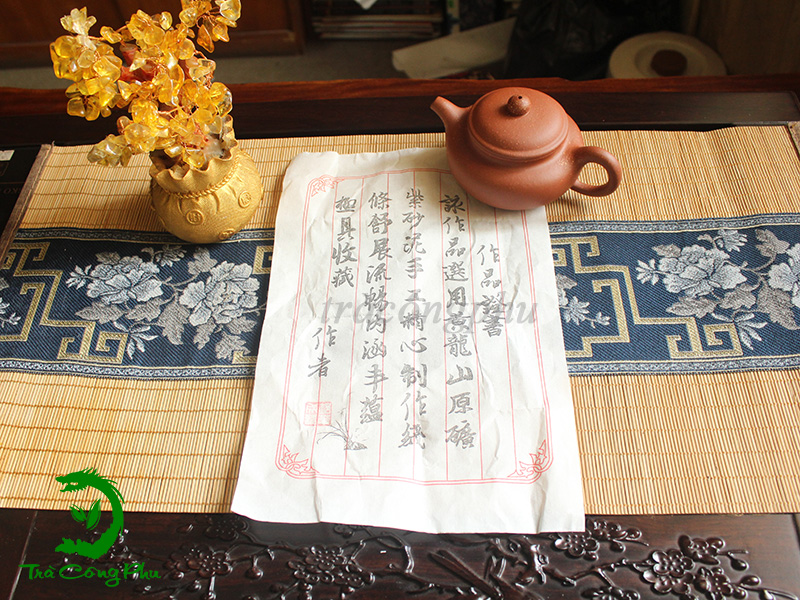 作品證書
該作品選用黃龍山原礦
紫砂泥手工精心制作綫
條舒展流暢內涵丰蘊
極具收藏
作者
tracongphu
Trà Công Phu